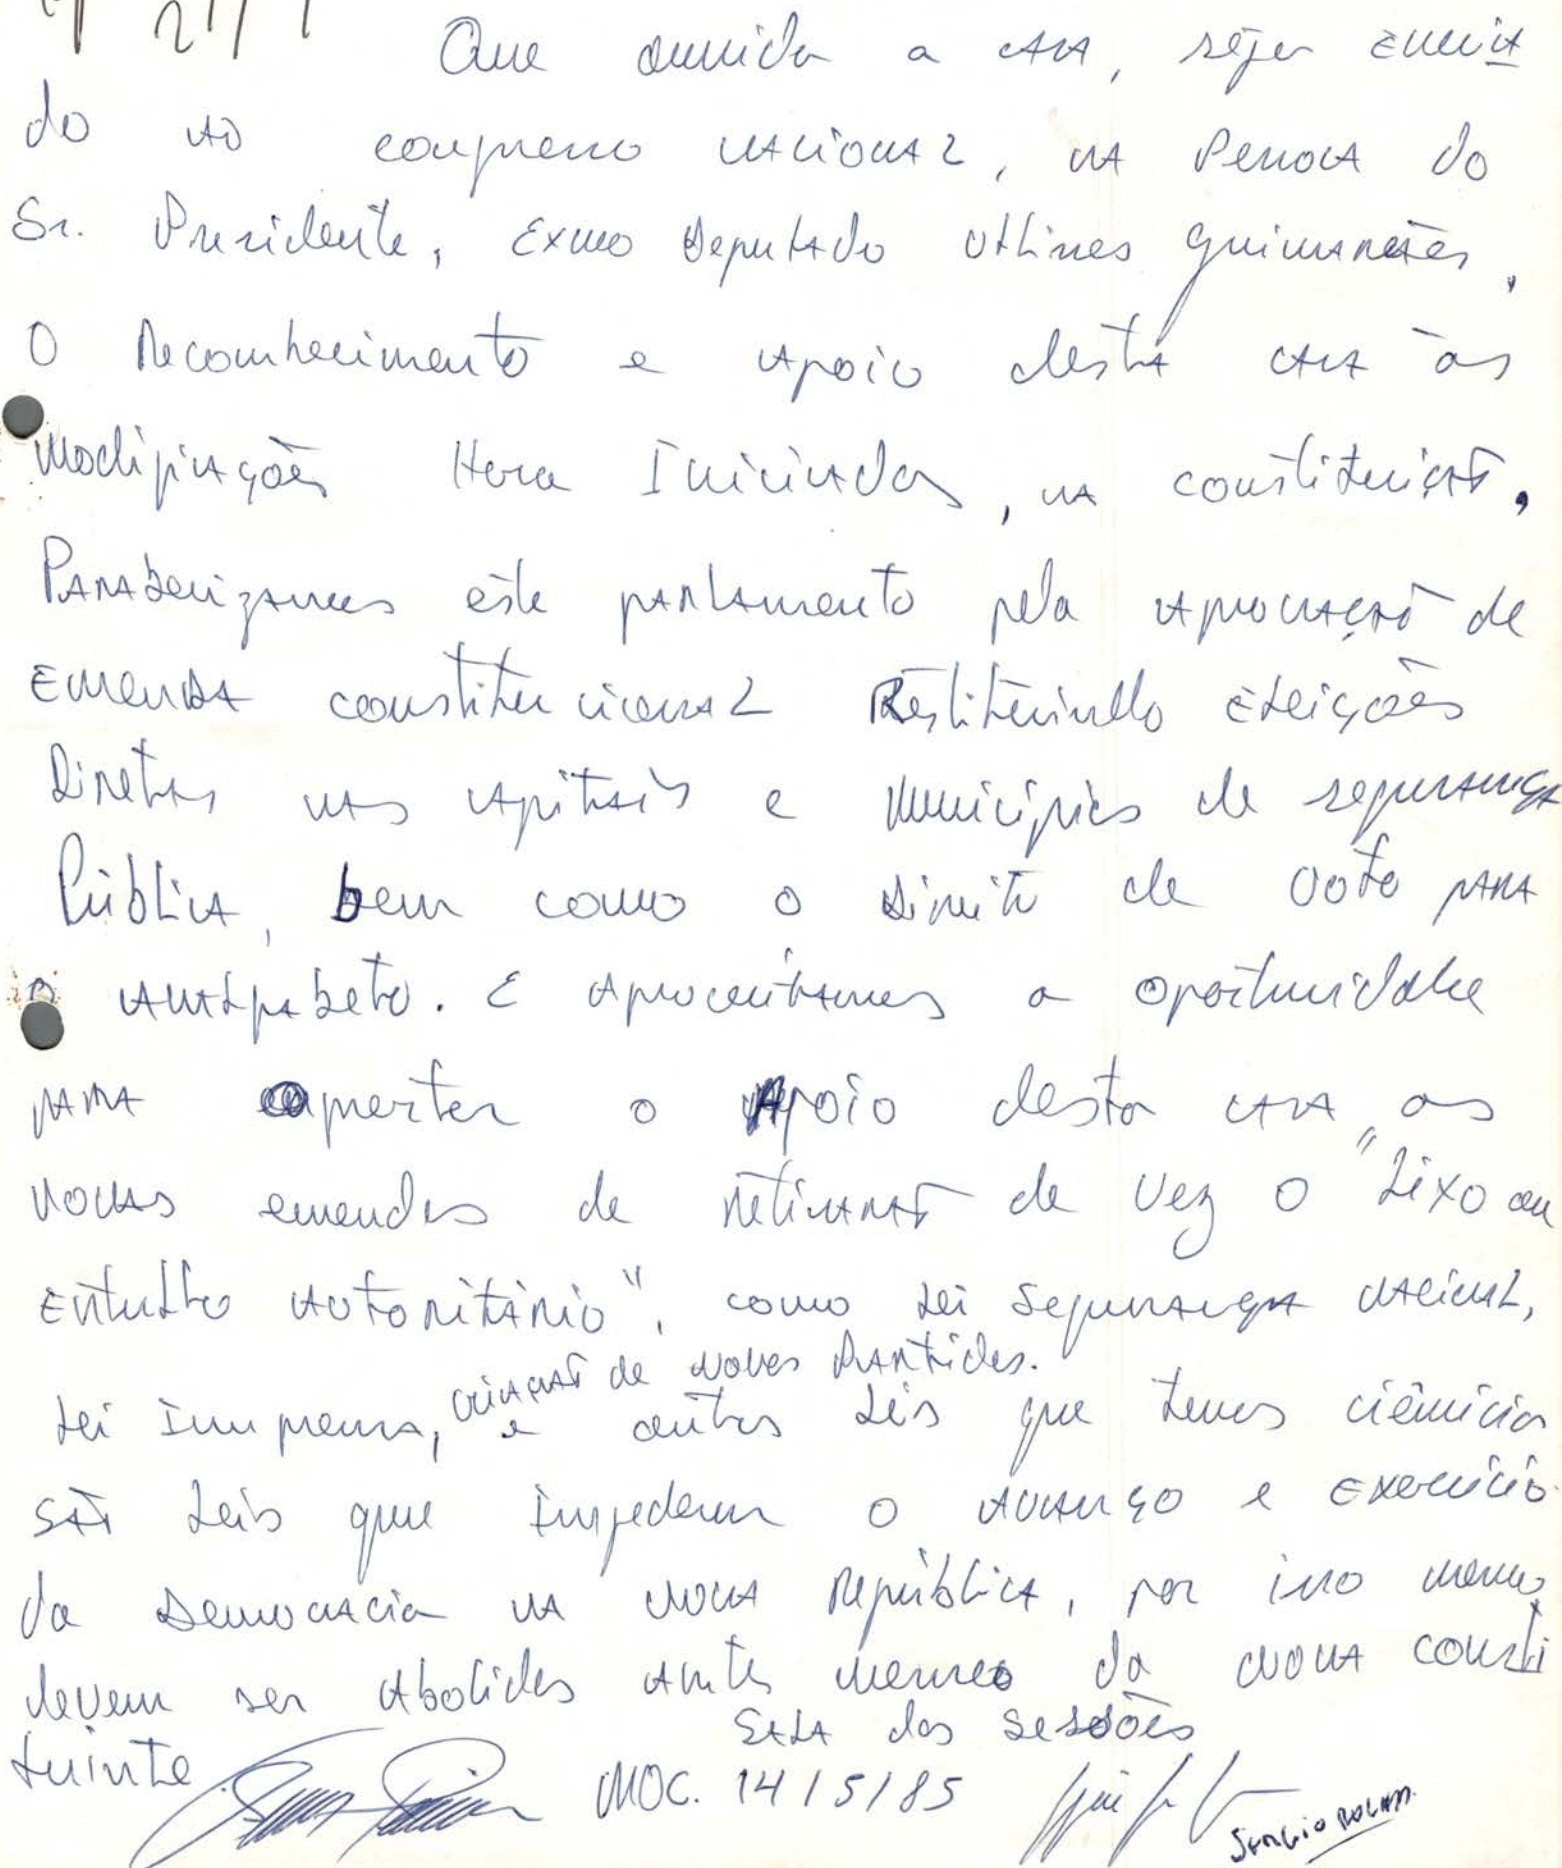 21/
Que ouvida a casa, seja envia
do ao congresso nacional, na Pessoa do
Sr. Presidente, Exmo Deputado Ulisses Guimarães,
O Reconhecimento e apoio desta casa às
Modificações Hora Iniciadas, na constituição,
Parabenizamos êste parlamento pela aprovação de
Emenda constitucional Restituindo Eleições
Diretas nas capitais e Municípios de segurança
Pública, bem como o direito de Voto para
o analfabeto. E aproveitamos a oportunidade
para o Apoio desta casa, as
novas emendas de retirar de vez o "Lixo ou
Entulho autoritário", como Lei Segurança nacional,
criação de novos Partidos.
Lei Imprensa, e outras Leis que temos ciência
são Leis que impedem o avanço e exercício
da Democracia na nova República, por isso mesmo
devem ser Abolidas antes mesmo da nova consti
tuinte.
Sala das Sessões
MOC. 14/5/85
Sergio